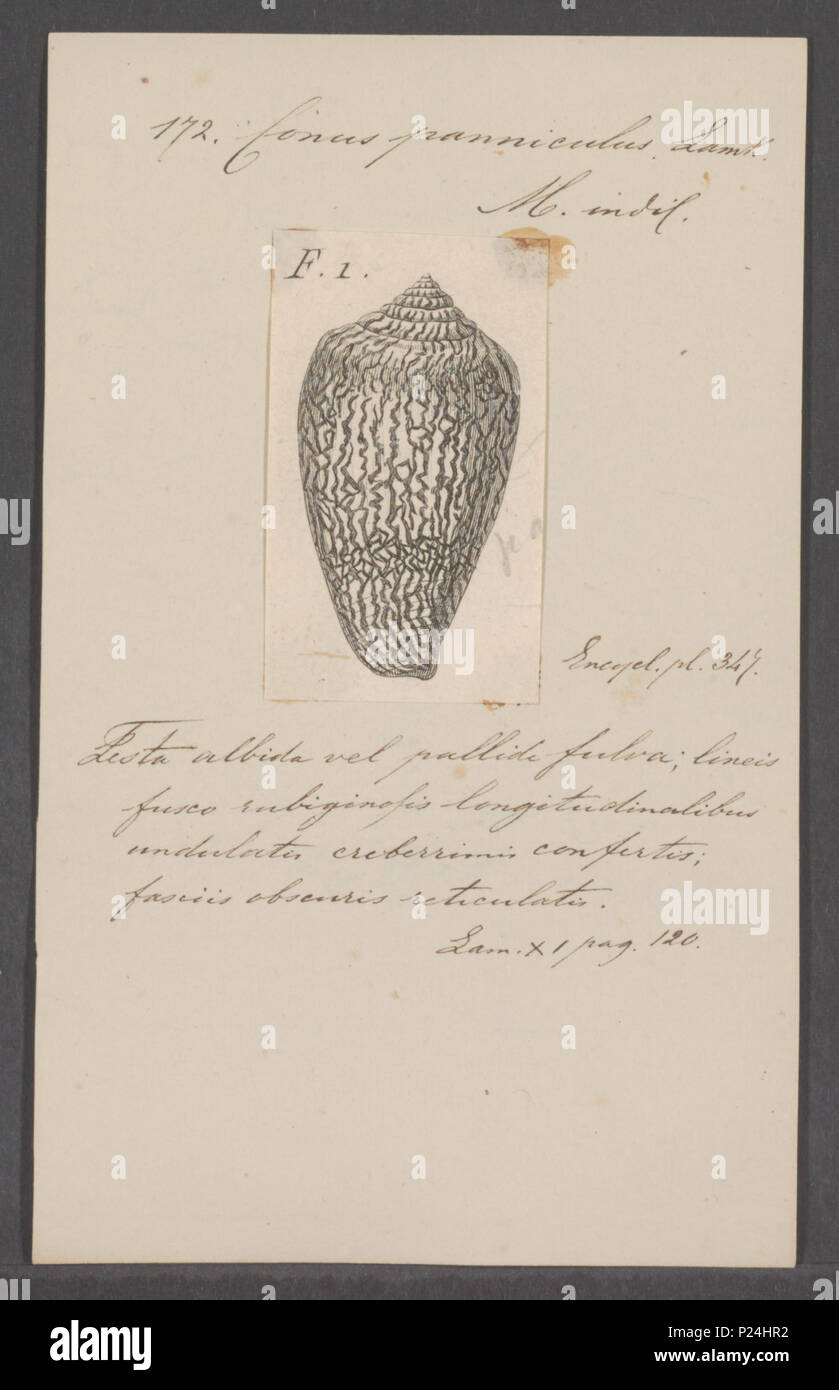 172. Conus panniculus. Lamk.
M. indil.
F. 1.
Encycl. pl. 347.
Testa albida vel pallide fulva; lineis
fusco rubiginosis longitudinalibus
undulatis creberrimis confertis;
fasciis obscuris reticulatis.
Lam. X 1 pag. 120.
alamy
Image ID: P24HR2
www.alamy.com